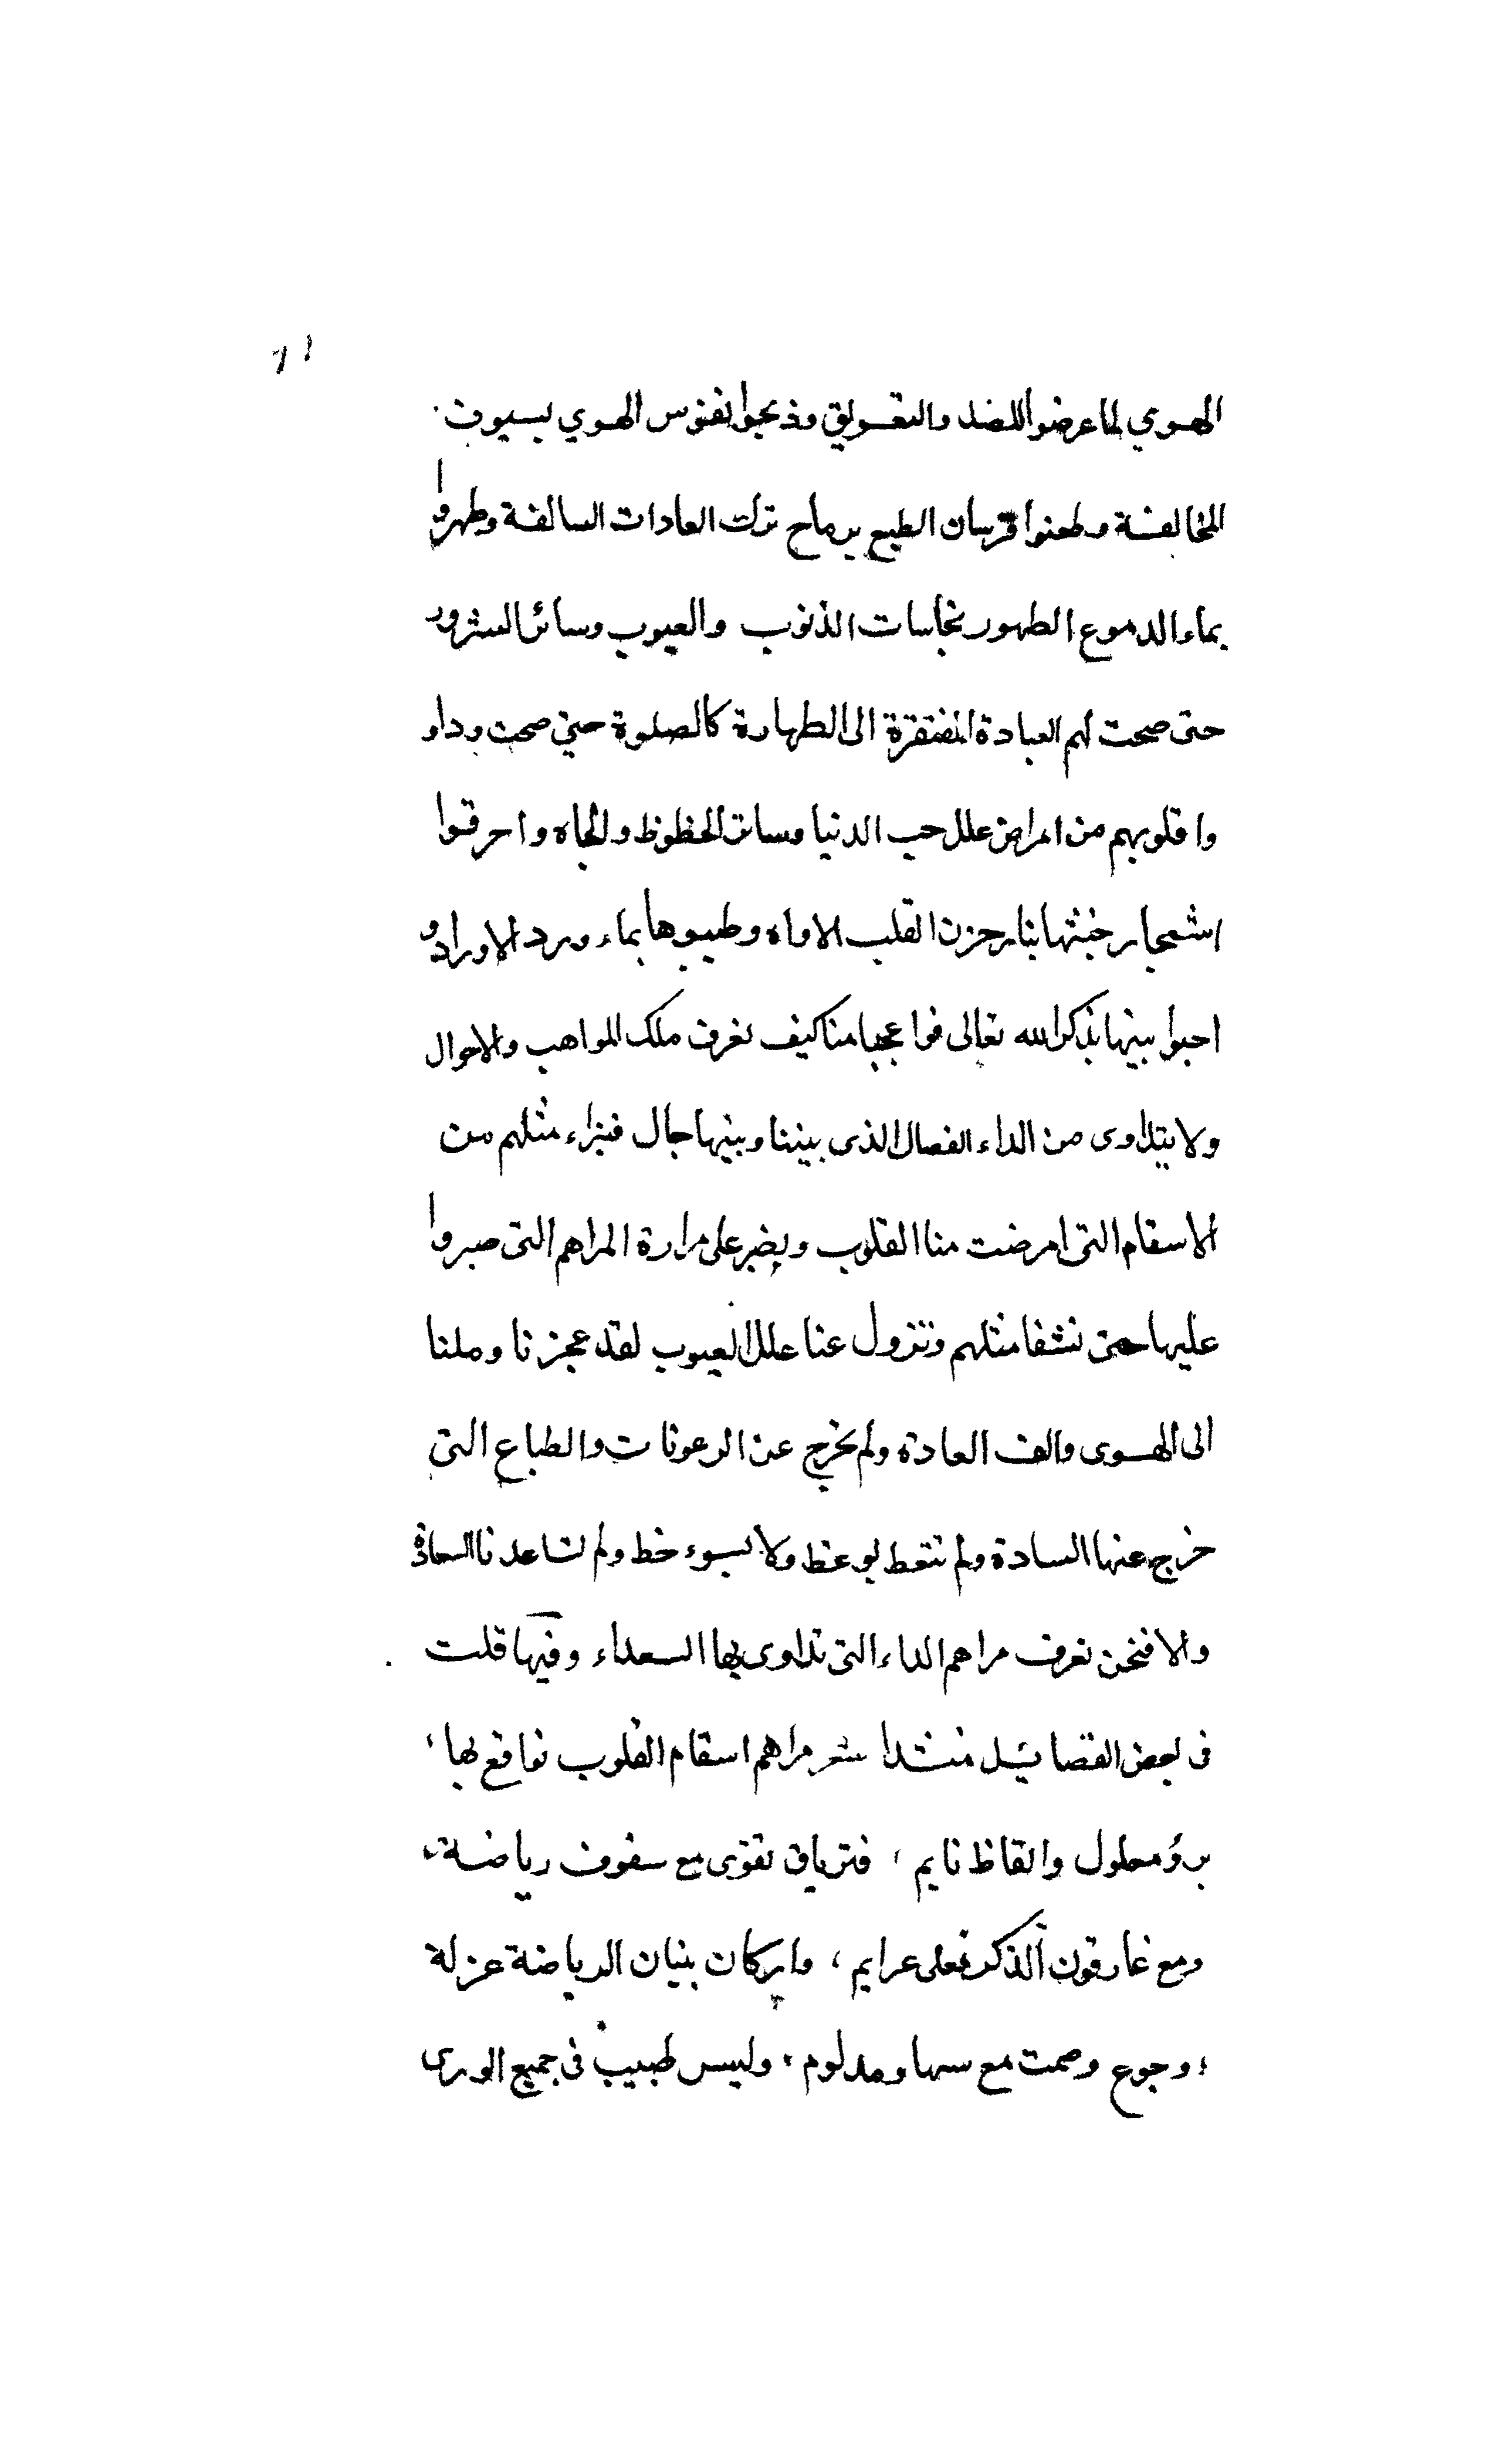 الهوي لما عرضوا للضد والتعويق وذبحوا نفوس الهوي بسيوف
المخالفة وطعنوا فرسان الطبع برماح ترك العادات السالفة وطهروا
بماء الدموع الطهور نجاسات الذنوب والعيوب وسائر الشرور
حتى صحت لهم العبادة المفتقرة الى الطهارة كالصلوة حتي صحت وداو
وا قلوبهم من امراض علل حب الدنيا وسائر الحظوظ والجاه واحرقوا
اشجار خبثها بنار حزن القلب الاواه وطيبوها بماء ورد الاوراد و
احيوا بيتها بذكر الله تعالى فوا عجبا منا كيف نعرف ملك المواهب والاحوال
ولا يتداوى من الداء الفصال الذى بيننا وبينها حال فنبراء مثلهم من
الاسقام التى امرضت منا القلوب ويصبر على مرارة المراهم التى صبروا
عليها حتى نشفا مثلهم وتزول عنا علل العيوب لقد عجزنا وملنا
الى الهوى والف العادة ولم نخرج عن الرعونات والطباع التى
خرج عنها السادة ولم نتعظ بوعظ ولا بسوء خط ولم تساعدنا السعادة
والا فنحن نعرف مراهم الداء التى تداوى بها السعداء وفيها قلت
فى بعض القصائد منشدا شعر مراهم اسقام القلوب نوافع لها
برؤ معلول وايقاظ نايم فترياق تقوى مع سفوف رياضة
ومع غاريقون الذكر فعلى عرايم واركان بنيان الرياضة عزلة
وجوع وصمت مع سها ومدلوم وليس طبيب فى جميع الورى